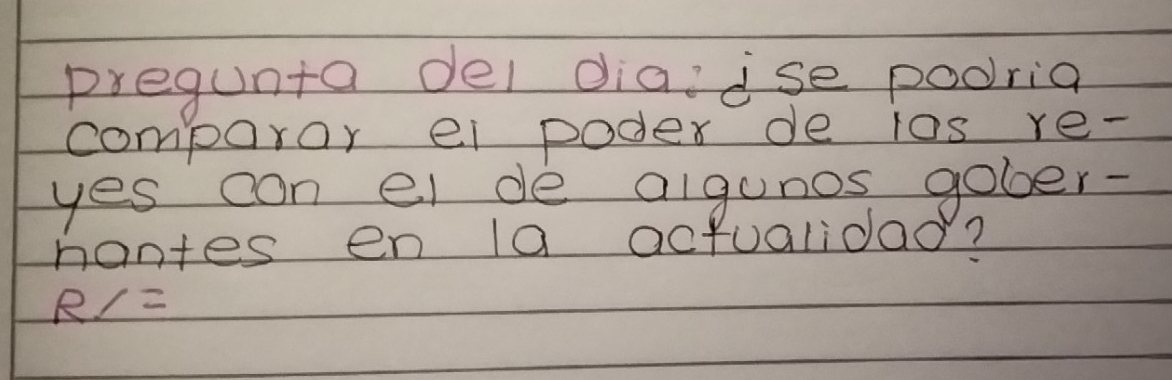 Pregunta del dia: ¿se podria
comparar el poder de los re-
yes con el de algunos gober-
nantes en la actualidad?
R/=